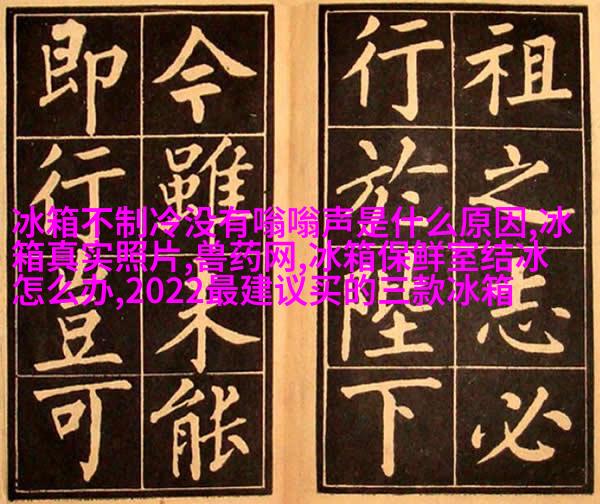 祖之志必
行於陛下
今雖未能
即行豈可
冰箱不制冷没有嗡嗡声是什么原因,冰
箱真实照片,兽药网,冰箱保鲜室结冰
怎么办,2022最建议买的三款冰箱